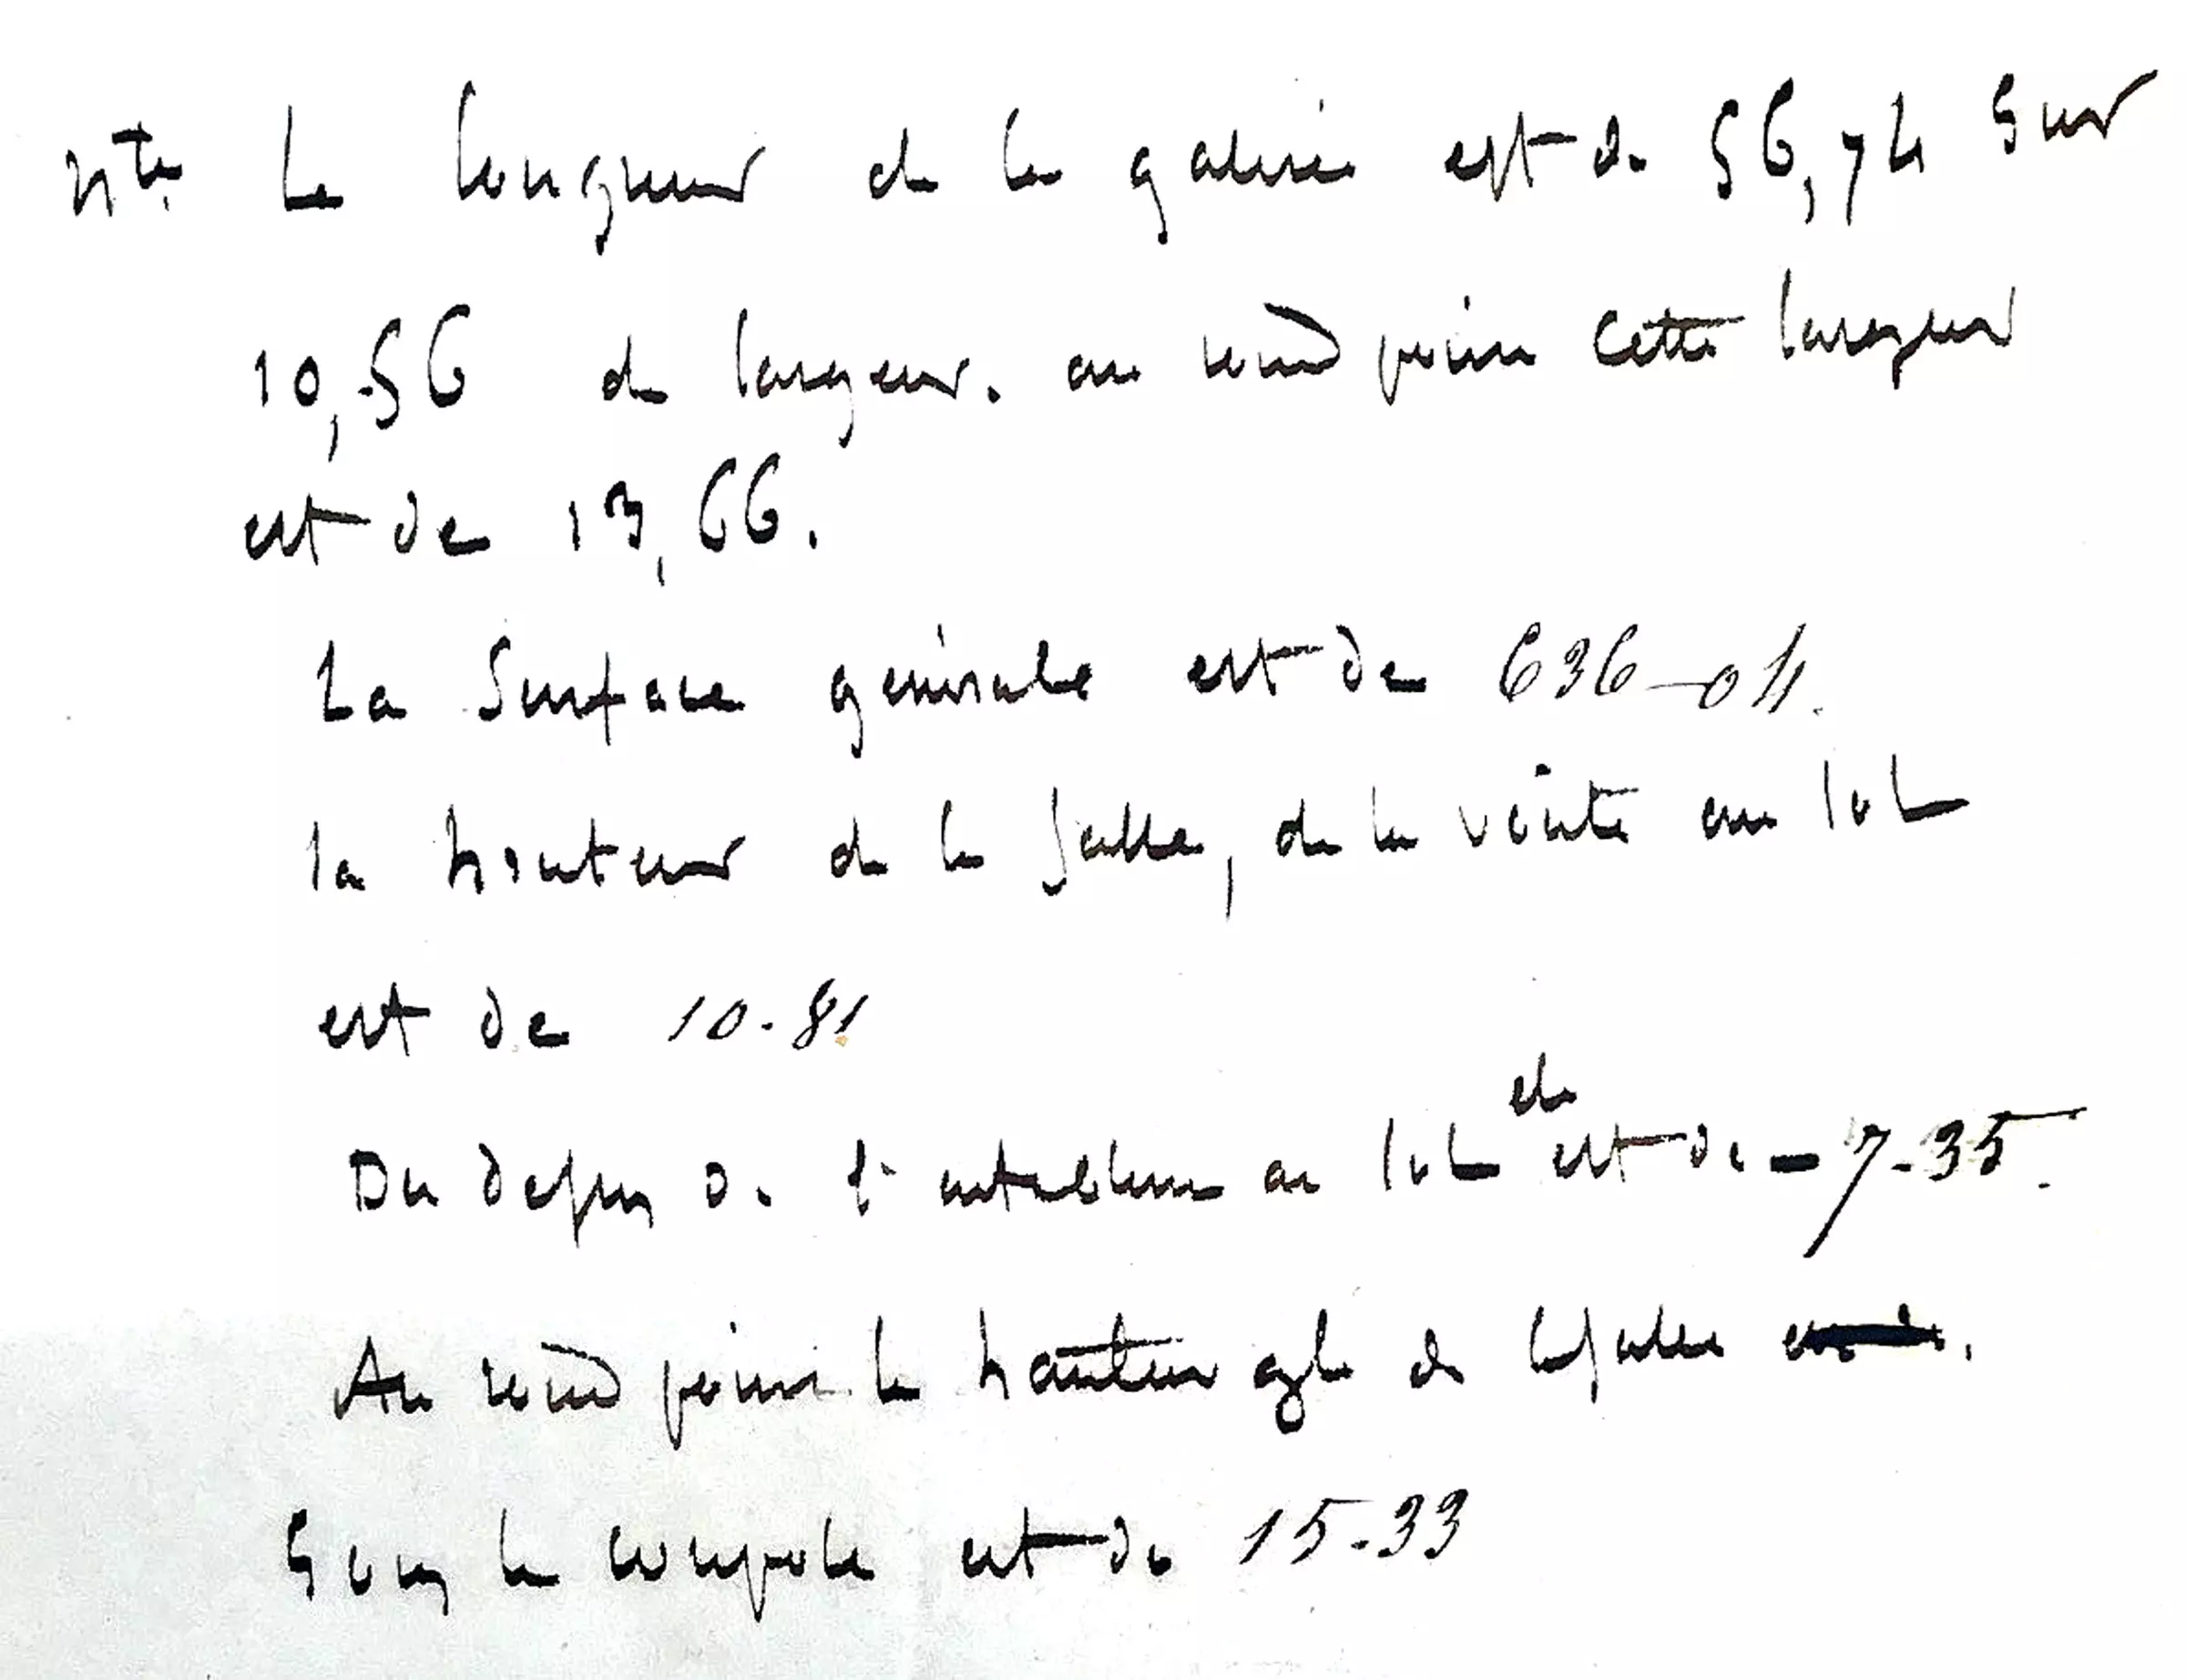 Nta La longueur de la galerie est de 56,74 sur
10,56 de largeur. au rond point cette largeur
est de 13,66.
La Surface générale est de 636-04.
la hauteur de la Salle, de la voûte au sol
est de 10.81
Du dessus de l'entablem au sol elle est de - 7.35.
Au rond point la hauteur gle de
Sous la coupole est de 15.33